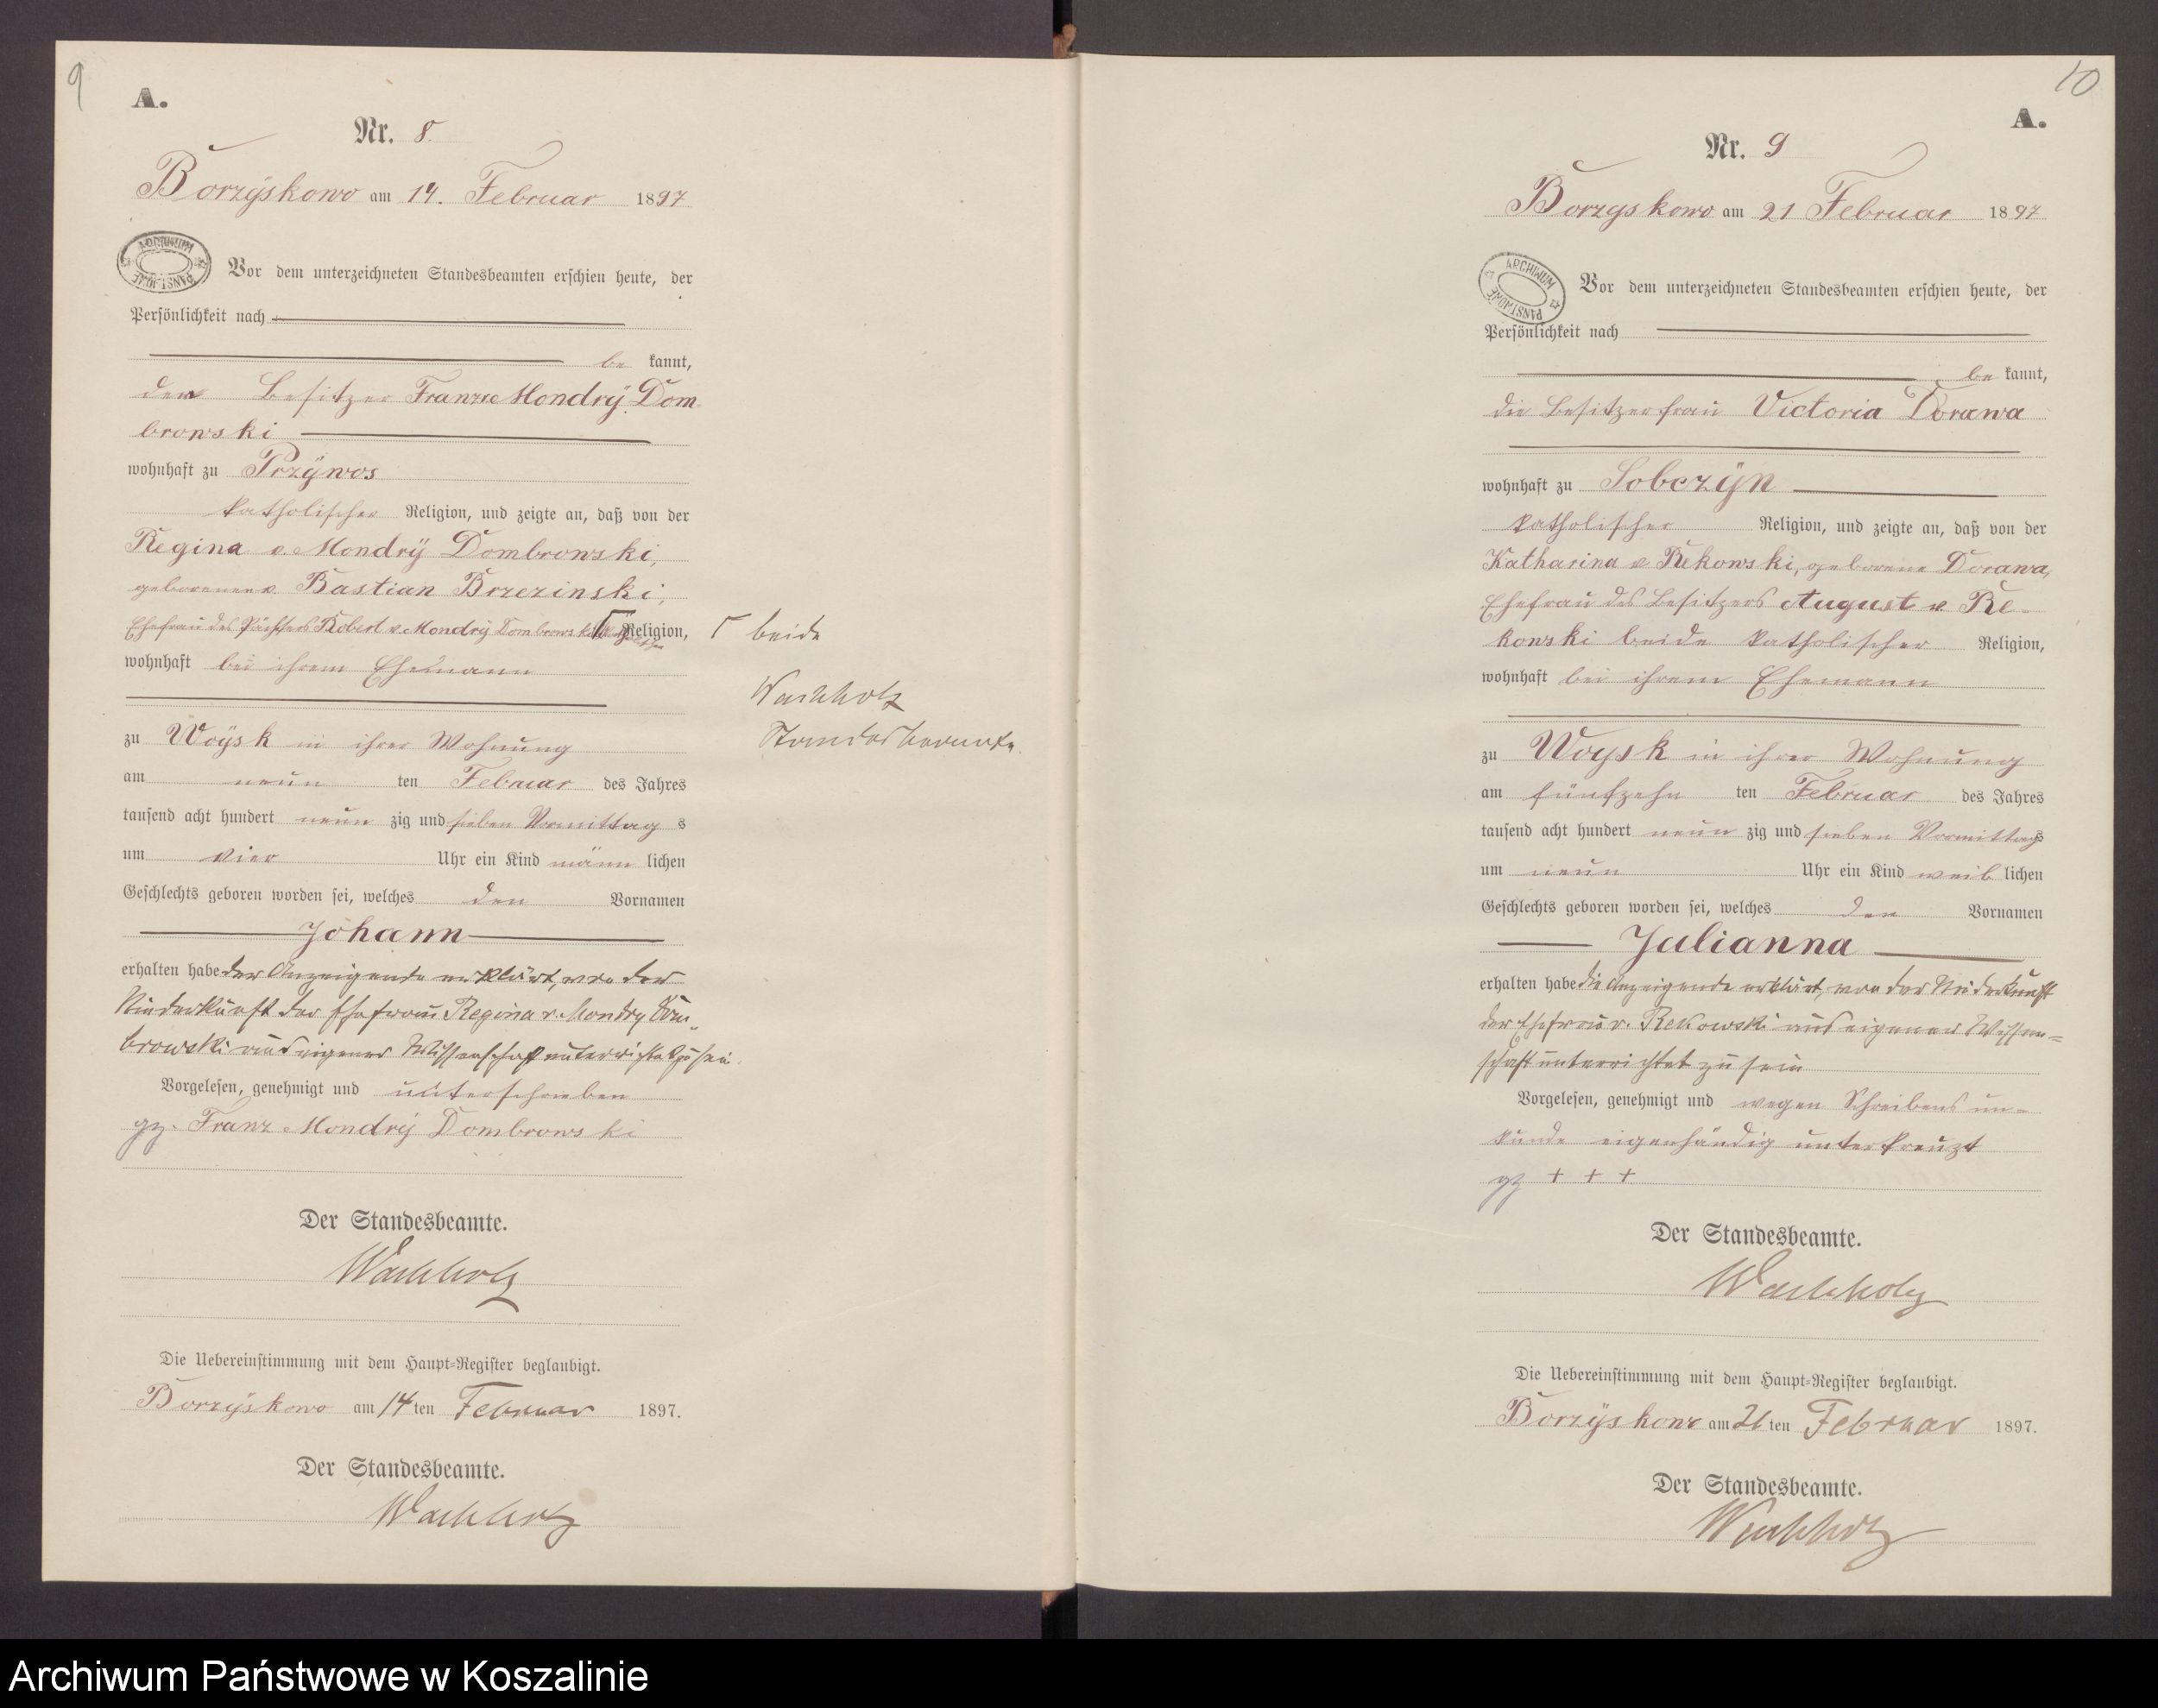 9
A.
Nr. 8.
Borzÿskowo am 14. Februar 1897
ARCHIWUM PAŃSTWOWE
Vor dem unterzeichneten Standesbeamten erschien heute, der
Persönlichkeit nach
be kannt,
der Besitzer Franz v Mondrÿ Dom
browski
wohnhaft zu Przÿwos
katholischer Religion, und zeigte an, daß von der
Regina v. Mondrÿ Dombrowski,
geborenen v. Bastian Brzezinski,
Ehefrau des Pächters Robert v. Mondrÿ Dombrowski Γ katholischer Religion,
Γ beide
wohnhaft bei ihrem Ehemann
Wachholz
Standesbeamte.
zu Woÿsk in ihrer Wohnung
am neun ten Februar des Jahres
tausend acht hundert neun zig und sieben Vormittag s
um vier Uhr ein Kind männ lichen
Geschlechts geboren worden sei, welches den Vornamen
Johann
erhalten habe der Anzeigende erklärt, von der
Niederkunft der Ehefrau Regina v. Mondry Dom„
browski aus eigener Wissenschaft unterrichtet zu sein.
Vorgelesen, genehmigt und unterschrieben
gz. Franz Mondrÿ Dombrowski
Der Standesbeamte.
Wachholz
Die Uebereinstimmung mit dem Haupt=Register beglaubigt.
Borzÿskowo am 14 ten Februar 1897.
Der Standesbeamte.
Wachholz
10
A.
Nr. 9
Borzyskowo am 21 Februar 1897
ARCHIWUM PAŃSTWOWE
Vor dem unterzeichneten Standesbeamten erschien heute, der
Persönlichkeit nach
be kannt,
die Besitzerfrau Victoria Dorawa
wohnhaft zu Sobczÿn
katholischer Religion, und zeigte an, daß von der
Katharina v Rekowski, geborene Dorawa,
Ehefrau des Besitzers August v Re-
kowski beide katholischer Religion,
wohnhaft bei ihrem Ehemann
zu Woysk in ihrer Wohnung
am fünfzehn ten Februar des Jahres
tausend acht hundert neun zig und sieben Vormittags
um neun Uhr ein Kind weib lichen
Geschlechts geboren worden sei, welches den Vornamen
Julianna
erhalten habe die Anzeigende erklärt, von der Niederkunft
der Ehefrau v. Rekowski aus eigener Wissen=
schaft unterrichtet zu sein
Vorgelesen, genehmigt und wegen Schreibens un-
kunde eigenhändig unterkreuzt
gz + + +
Der Standesbeamte.
Wachholz
Die Uebereinstimmung mit dem Haupt=Register beglaubigt.
Borzÿskowo am 21 ten Februar 1897.
Der Standesbeamte.
Wachholz
Archiwum Państwowe w Koszalinie